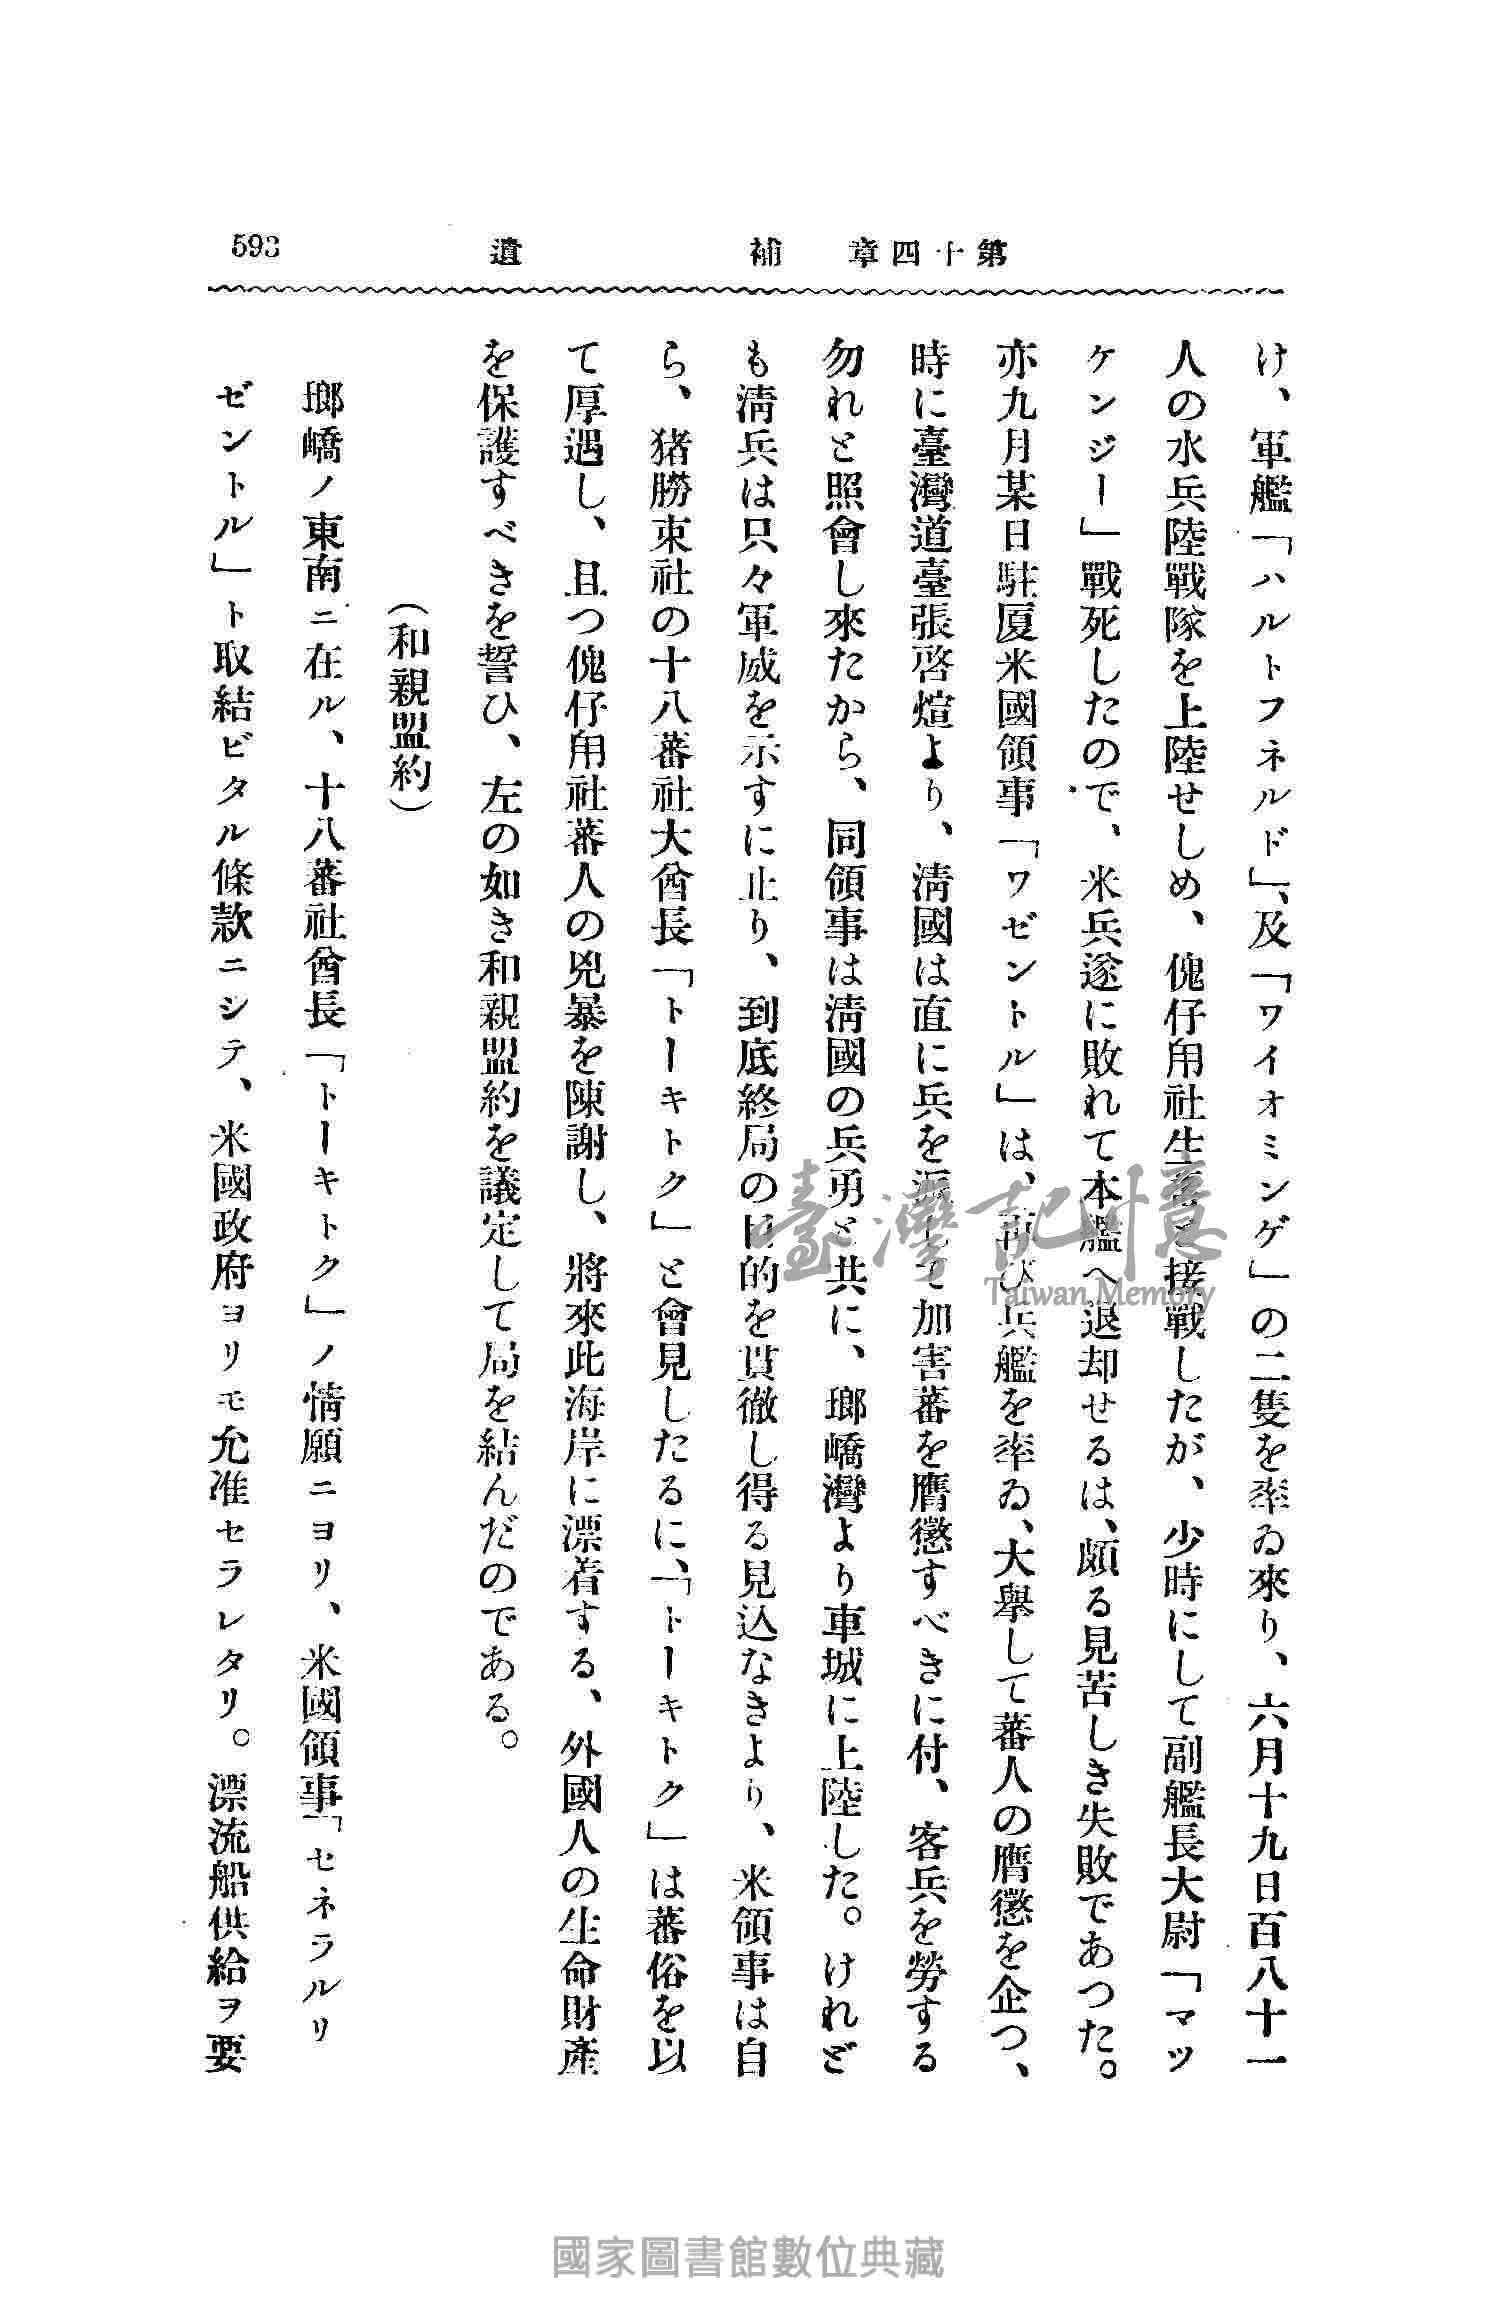 第十四章 補遺 593
け、軍艦「ハルトフネルド」、及「ワイオミンゲ」の二隻を率ゐ來り、六月十九日百八十一
人の水兵陸戰隊を上陸せしめ、傀仔用社生蕃と接戰したが、少時にして副艦長大尉「マツ
ケンジー」戰死したので、米兵遂に敗れて本艦へ退却せるは、頗る見苦しき失敗であつた。
亦九月某日駐厦米國領事「ワゼントル」は、再び兵艦を率ゐ、大擧して蕃人の膺懲を企つ、
時に臺灣道臺張啓煊より、淸國は直に兵を派して加害蕃を膺懲すべきに付、客兵を勞する
勿れと照會し來たから、同領事は淸國の兵勇と共に、瑯嶠灣より車城に上陸した。けれど
も淸兵は只々軍威を示すに止り、到底終局の目的を貫徹し得る見込なきより、米領事は自
ら、猪朥束社の十八蕃社大酋長「トーキトク」と會見したるに、「トーキトク」は蕃俗を以
て厚遇し、且つ傀仔用社蕃人の兇暴を陳謝し、將來此海岸に漂着する、外國人の生命財產
を保護すべきを誓ひ、左の如き和親盟約を議定して局を結んだのである。
(和親盟約)
瑯嶠ノ東南ニ在ル、十八蕃社酋長「トーキトク」ノ情願ニヨリ、米國領事「セネラルリ
ゼントル」ト取結ビタル條款ニシテ、米國政府ヨリモ允准セラレタリ。漂流船供給ヲ要
臺灣記憶
Taiwan Memory
國家圖書館數位典藏